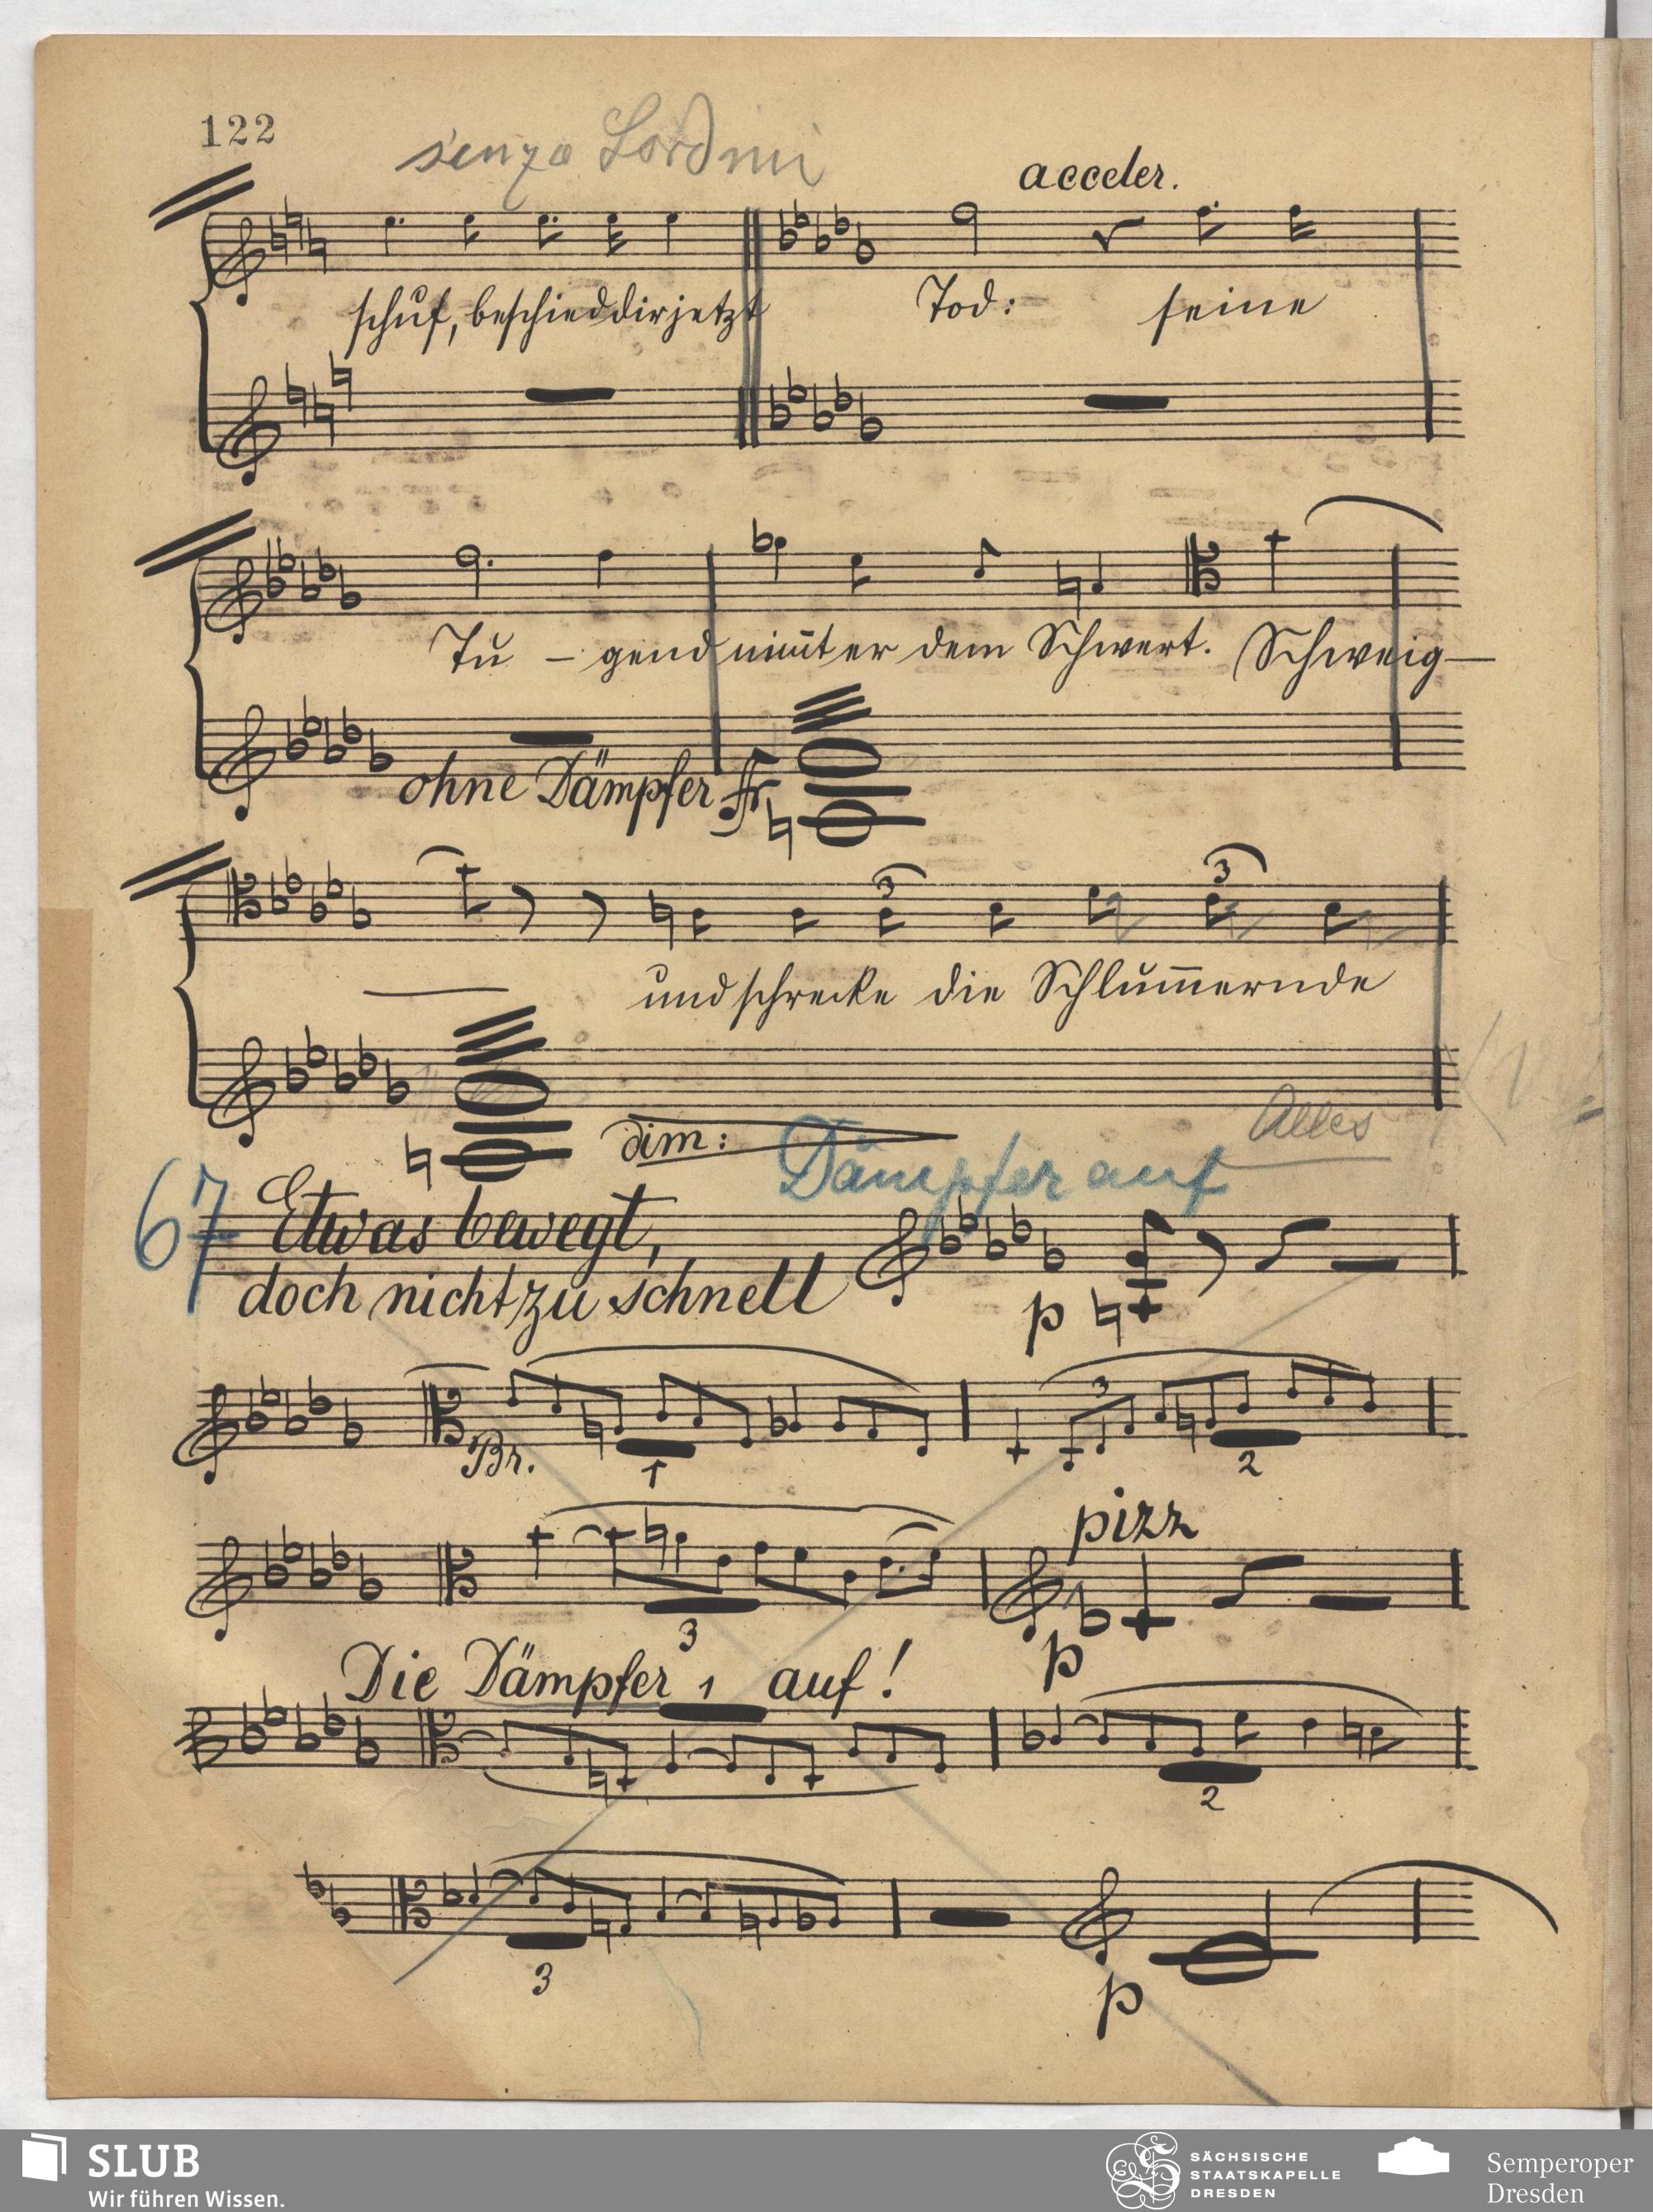 122
senza Sordini
acceler.
schuf, beschied dir jetzt Tod: seine
Tu - gend nim̄t er dem Schwert. Schweig-
ohne Dämpfer ff
und schrecke die Schlum̄ernde
3 3
dim:
Dämpfer auf
Alles
67
Etwas bewegt,
doch nicht zu schnell
p
Br. 1 3 2
pizz
3
p
Die Dämpfer 1 auf!
2
3
p
SLUB
Wir führen Wissen.
SÄCHSISCHE
STAATSKAPELLE
DRESDEN
Semperoper
Dresden